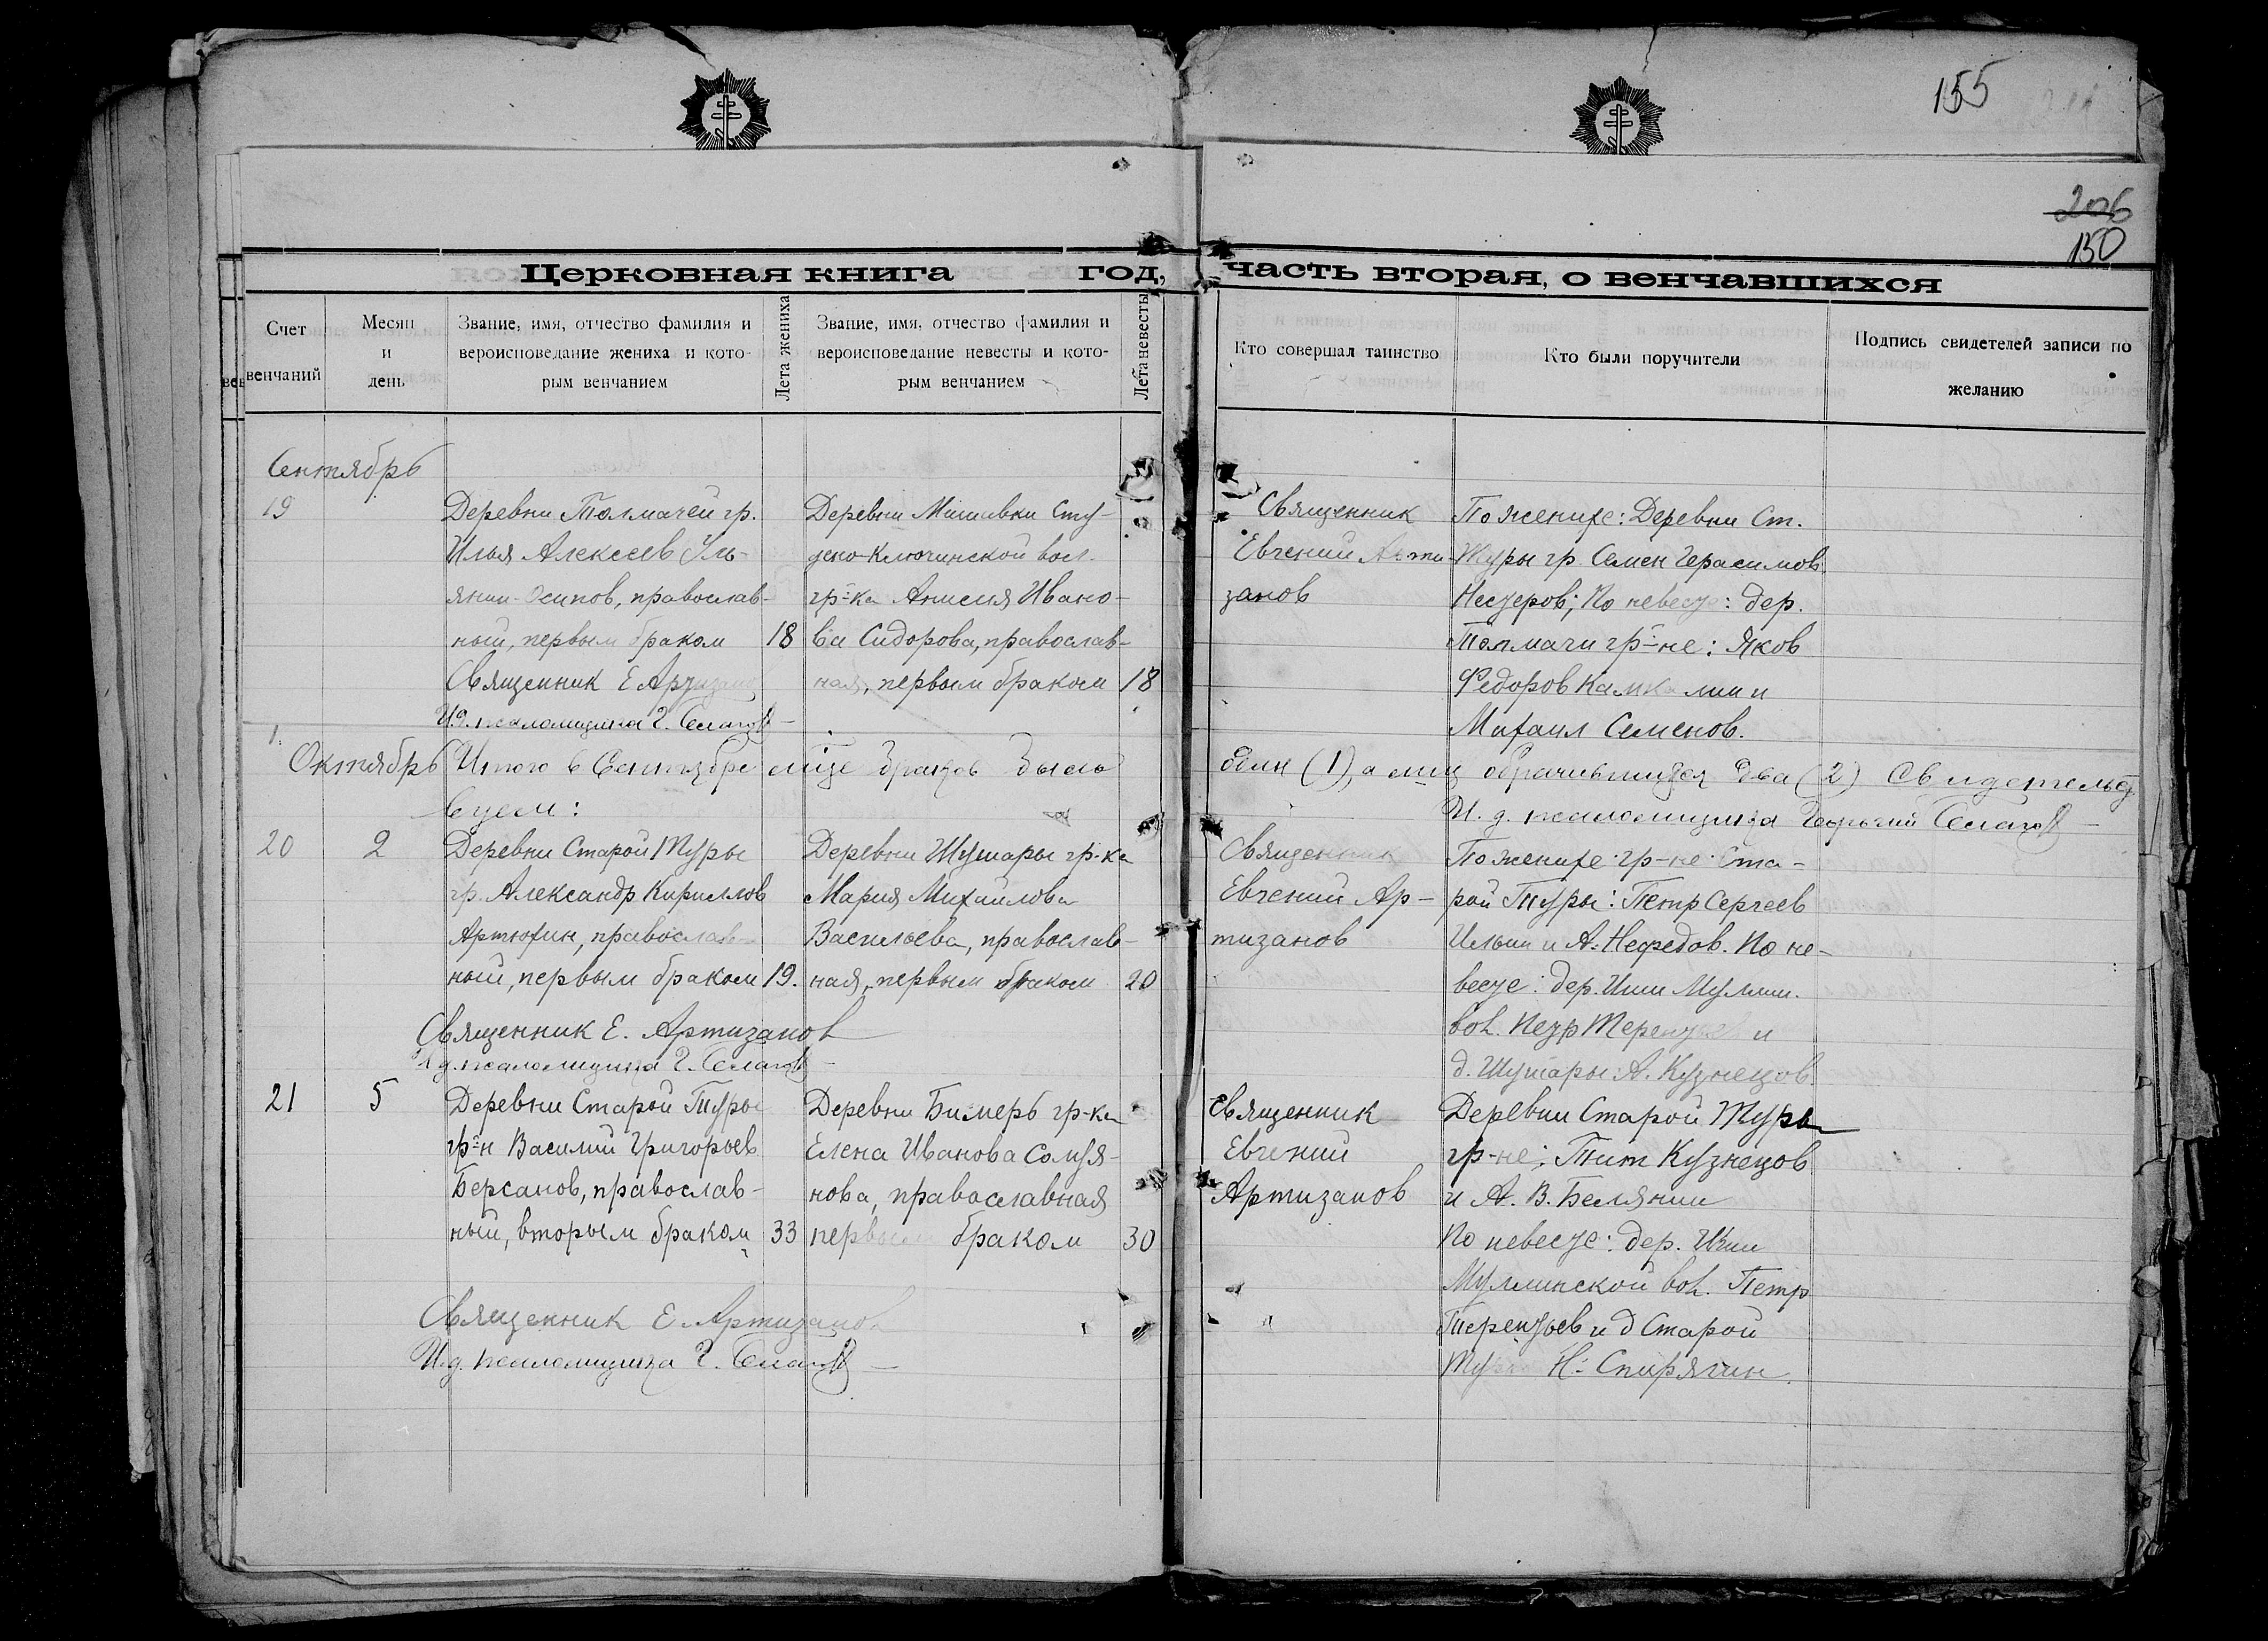 155
206
150
Церковная книга год, часть вторая, о венчавшихся
Счет венчаний
Месяц и день
Звание, имя, отчество фамилия и вероисповедание жениха и кото-
рым венчанием
Лета жениха
Звание, имя, отчество фамилия и вероисповедание невесты и кото-
рым венчанием
Лета невесты
Кто совершал таинство
Кто были поручители
Подпись свидетелей записи по
желанию
Сентябрь
19
Деревни Толмачей гр.
Илья Алексеев Уль-
янин-Осипов, православ-
ный, первым браком
18
Священник Е Артизанов
И.д. псаломщика Г.
Деревни Мишивки Сту-
дено-Ключинской вол.
гр-ка Анисия Ивано-
ва Сидорова, православ-
ная, первым браком
18
Священник
Евгений Арти-
занов
По женихе: Деревни Ст.
Туры гр. Семен Герасимов
Нестеров; По невесте: дер.
Толмачи гр-не: Яков
Федоров Камкалин и
Михаил Семенов.
Октябрь
Итого в Сентябре м-це браков было один (1), а лиц обрачившихся два (2) Свидетельст
вуем:
И. д. псаломщика Георгий
20
2
Деревни Старой Туры
гр. Александр Кириллов
Артюфин, православ-
ный, первым браком
19.
Священник Е. Артизанов
И д. псаломщика Г.
Деревни Шушары гр-ка
Мария Михайлова
Васильева, православ-
ная, первым браком
20
Священник
Евгений Ар-
тизанов
По женихе гр-не Ста-
рой Туры: Петр Сергеев
Ильин и А. Нефедов. По не-
весте: дер. Ишии Муллин.
вол. Петр Терентьев и
д. Шушары: А. Кузнецов.
21
5
Деревни Старой Туры
гр-н Василий Григорьев
Берсанов, православ-
ный, вторым браком
33
Священник Е. Артизанов
И.д. псаломщика Г.
Деревни Бимерь гр-ка
Елена Иванова Сомуя-
нова, православная
первым браком
30
Священник
Евгений
Артизанов
Деревни Старой Туры
гр-не: Тит Кузнецов
и А. В. Белянин
По невесте: дер.
Муллинской вол. Петр
Терентьев и д Старой
Туры Н. Спирягин.